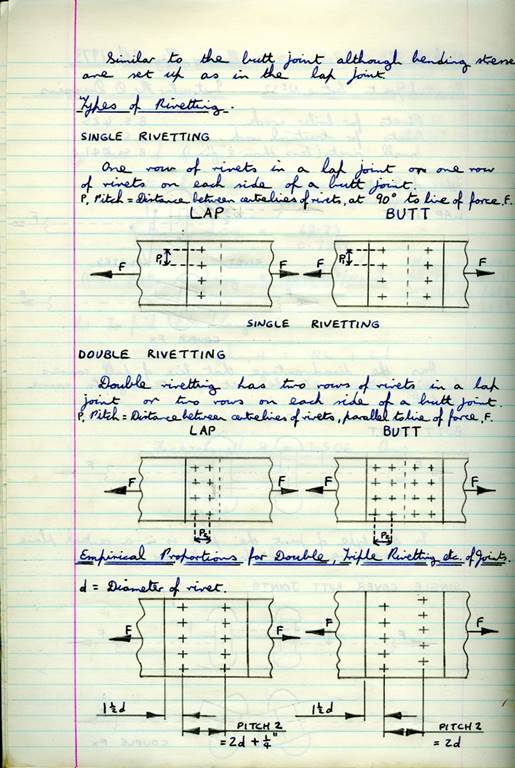 Similar to the butt joint although bending stresses
are set up as in the lap joint.
Types of Rivetting.
SINGLE RIVETTING
One row of rivets in a lap joint or one row
of rivets on each side of a butt joint.
P, Pitch = Distance between centrelines of rivets, at 90° to line of force, F.
LAP BUTT
F P₁ F F P₁ F
SINGLE RIVETTING
DOUBLE RIVETTING
Double rivetting has two rows of rivets in a lap
joint or two rows on each side of a butt joint.
P, Pitch = Distance between centrelines of rivets, parallel to line of force, F.
LAP BUTT
F F F F
P₂ P₂
Empirical Proportions for Double, Triple Rivetting etc. of Joints.
d = Diameter of rivet.
F F F F
1½d 1½d
PITCH 2 PITCH 2
= 2d + ¼" = 2d